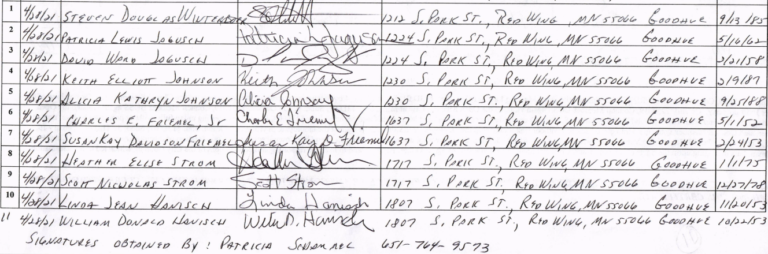 1 4/28/21 STEVEN DOUGLAS WINTER 1212 S. PARK ST., RED WING, MN 55066 GOODHUE 9/13/85
2 4/28/21 PATRICIA LEWIS JOGUSCH Patricia Jogusch 1224 S. PARK ST., RED WING, MN 55066 GOODHUE 5/16/62
3 4/28/21 DAVID WARD JOGUSCH 1224 S. PARK ST., RED WING, MN 55066 GOODHUE 2/21/58
4 4/28/21 KEITH ELLIOTT JOHNSON Keith Johnson 1230 S. PARK ST., RED WING, MN 55066 GOODHUE 2/9/87
5 4/28/21 ALICIA KATHRYN JOHNSON Alicia Johnson 1230 S. PARK ST., RED WING, MN 55066 GOODHUE 9/25/88
6 4/28/21 CHARLES R. FRIEMEL, Jr Charles E Friemel 1637 S. PARK ST, RED WING, MN 55066 GOODHUE 5/1/52
7 4/28/21 SUSAN KAY DAVIDSON FRIEMEL Susan Kay D. Friemel 1637 S. PARK ST., RED WING, MN 55066 GOODHUE 2/24/53
8 4/28/21 HEATHER ELISE STROM 1717 S. PARK ST., RED WING, MN 55066 GOODHUE 1/1/75
9 4/28/21 SCOTT NICHOLAS STROM Scott Strom 1717 S. PARK ST, RED WING, MN 55066 GOODHUE 12/27/78
10 4/28/21 LINDA JEAN HANISCH Linda Hanisch 1807 S. PARK ST., RED WING, MN 55066 GOODHUE 11/20/53
11 4/28/21 WILLIAM DONALD HANISCH 1807 S. PARK ST., RED WING, MN 55066 GOODHUE 10/22/53
SIGNATURES OBTAINED BY: PATRICIA 651-764-9573